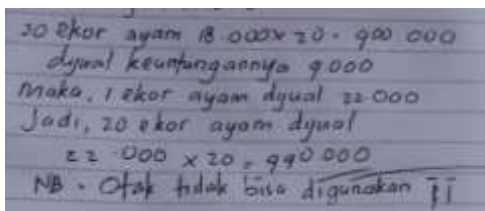 20 ekor ayam 18 000 x 20 = 900 000
dijual keuntungannya 9.000
Maka, 1 ekor ayam dijual 22 000
Jadi, 20 ekor ayam dijual
22 000 x 20 = 990 000
NB = Otak tidak bisa digunakan